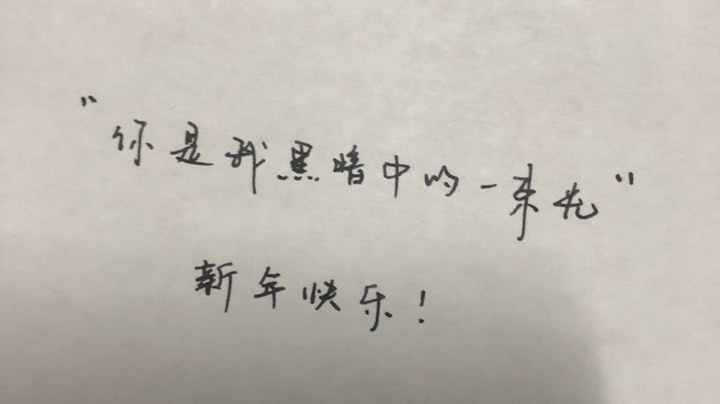 “你是我黑暗中的一束光”
新年快乐！